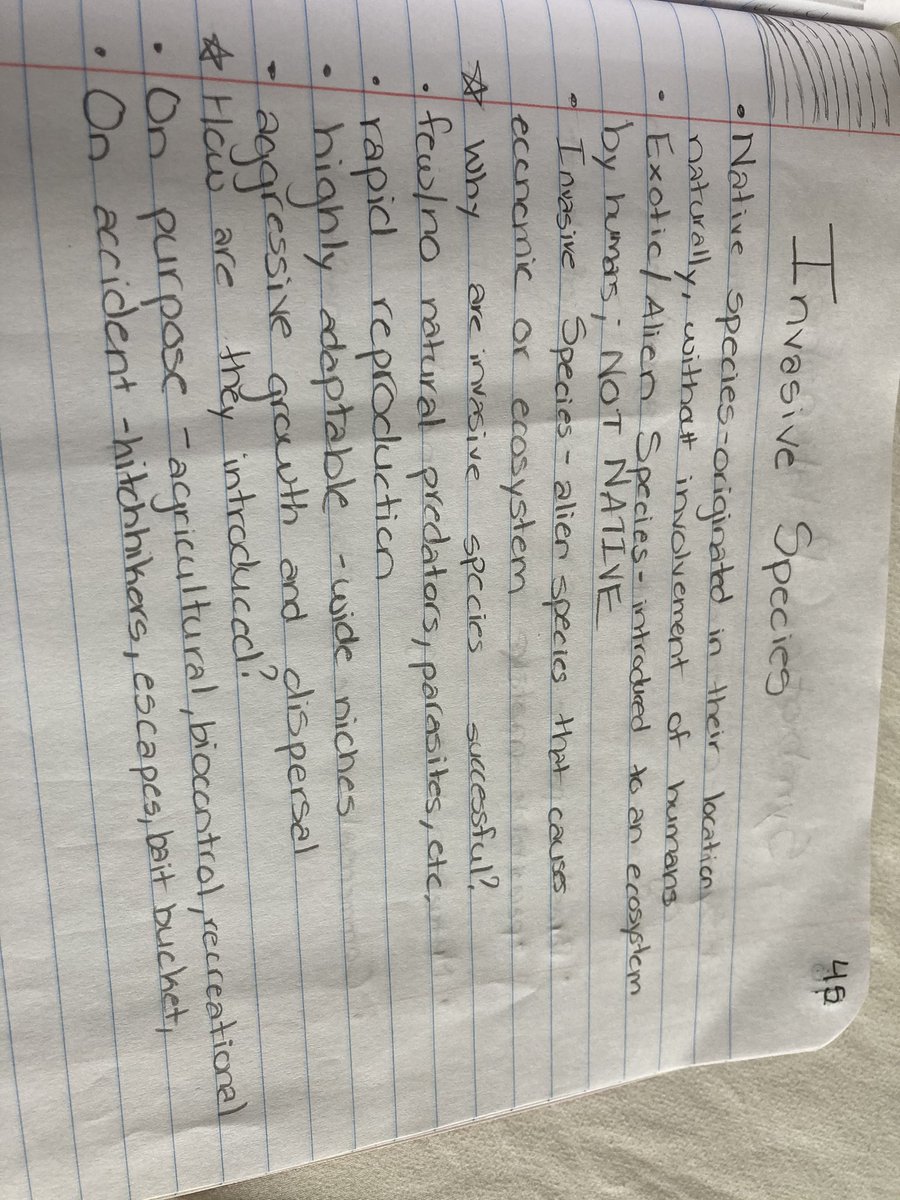 45
Invasive Species
• Native species - originated in their location
naturally, without involvement of humans
• Exotic/Alien Species - introduced to an ecosystem
by humans; NOT NATIVE
• Invasive Species - alien species that causes
economic or ecosystem
☆ Why are invasive species successful?
• few/no natural predators, parasites, etc.
• rapid reproduction
• highly adaptable - wide niches
• aggressive growth and dispersal
☆ How are they introduced?
• On purpose - agricultural, biocontrol, recreational
• On accident - hitchhikers, escapes, bait bucket,